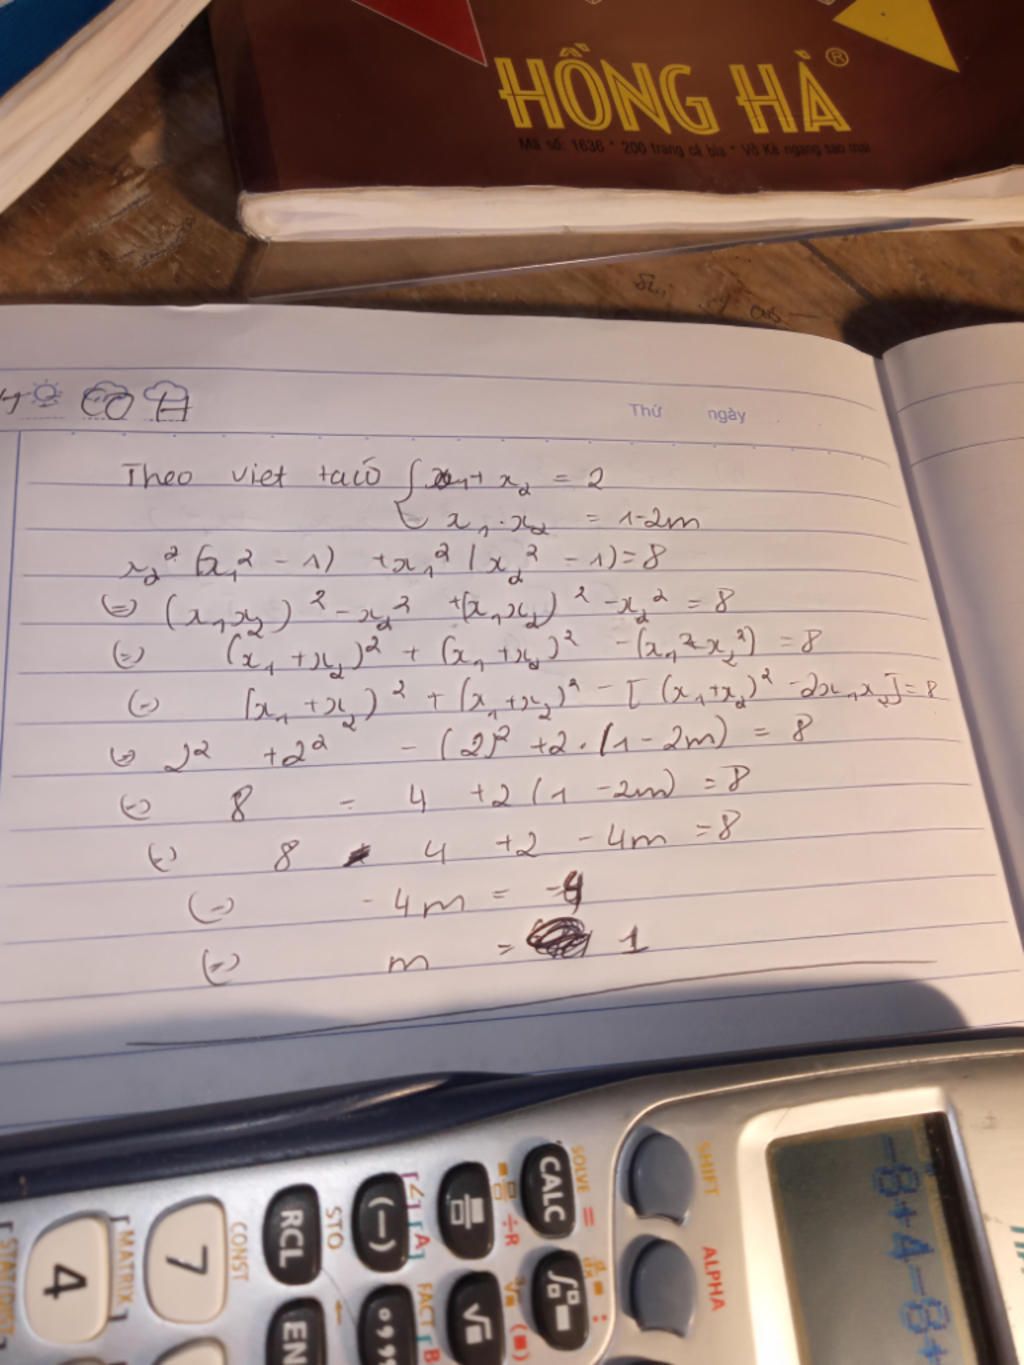 HỒNG HÀ®
Mã số: 1636 * 200 trang cả bìa * Vở Kẻ ngang sao mai
Thứ ngày
Theo viet ta có { x₁ + x₂ = 2
x₁ . x₂ = 1-2m
x₂² (x₁² - 1) + x₁² (x₂² - 1) = 8
(=) (x₁x₂)² - x₂² + (x₁x₂)² - x₂² = 8
(=) (x₁ + x₂)² + (x₁ + x₂)² - (x₁² + x₂²) = 8
(=) (x₁ + x₂)² + (x₁ + x₂)² - [(x₁ + x₂)² - 2x₁x₂] = 8
(=) 2² + 2² - (2)² + 2.(1 - 2m) = 8
(=) 8 - 4 + 2(1 - 2m) = 8
(=) 8 - 4 + 2 - 4m = 8
(=) - 4m =
(=) m = 1
SHIFT
ALPHA
SOLVE =
CALC
÷R
(—)
∠
A
STO
RCL
CONST
7
MATRIX
4
FACT
B
√■
ENG
-8+4-8+